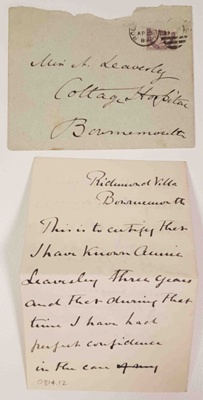 AP
Miss A. Leaversley
Cottage Hospital
Bournemouth
Richmond Villa
Bournemouth
This is to certify that
I have known Annie
Leaversley three years
and that during that
time I have had
perfect confidence
in the care of my
0314.12